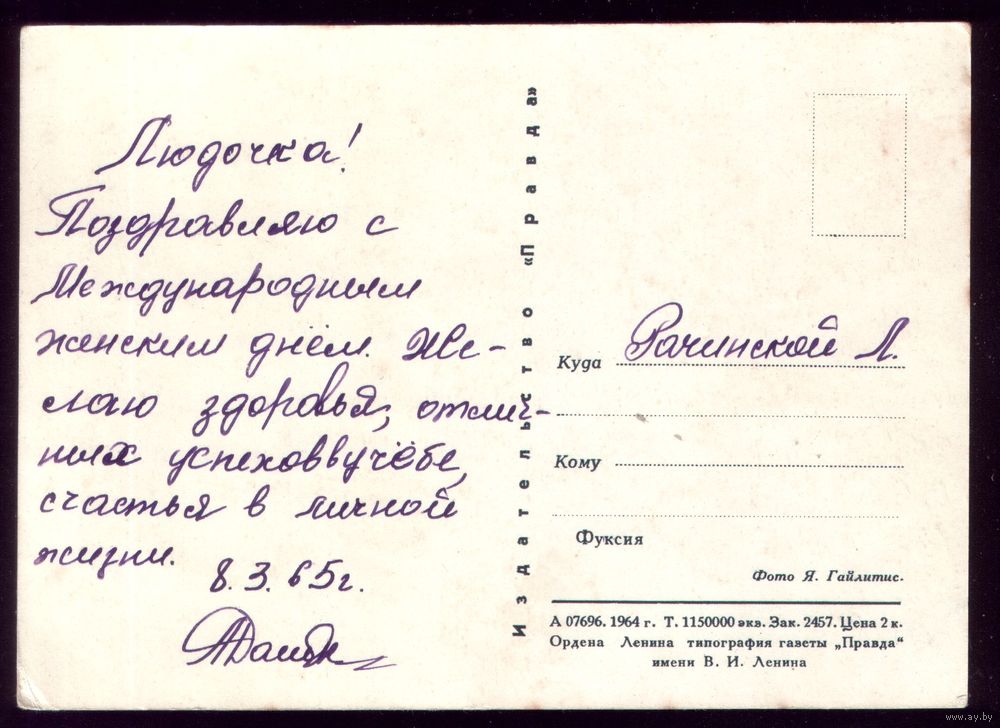 Людочка!
Поздравляю с
Международным
женским днём. Же-
лаю здоровья, отлич-
ных успехов в учёбе,
счастья в личной
жизни.
8.3.65г.
Издательство «Правда»
Куда Рачинской Л.
Кому
Фуксия
Фото Я. Гайлитис.
А 07696. 1964 г. Т. 1150000 экв. Зак. 2457. Цена 2 к.
Ордена Ленина типография газеты „Правда“
имени В. И. Ленина
www.ay.by